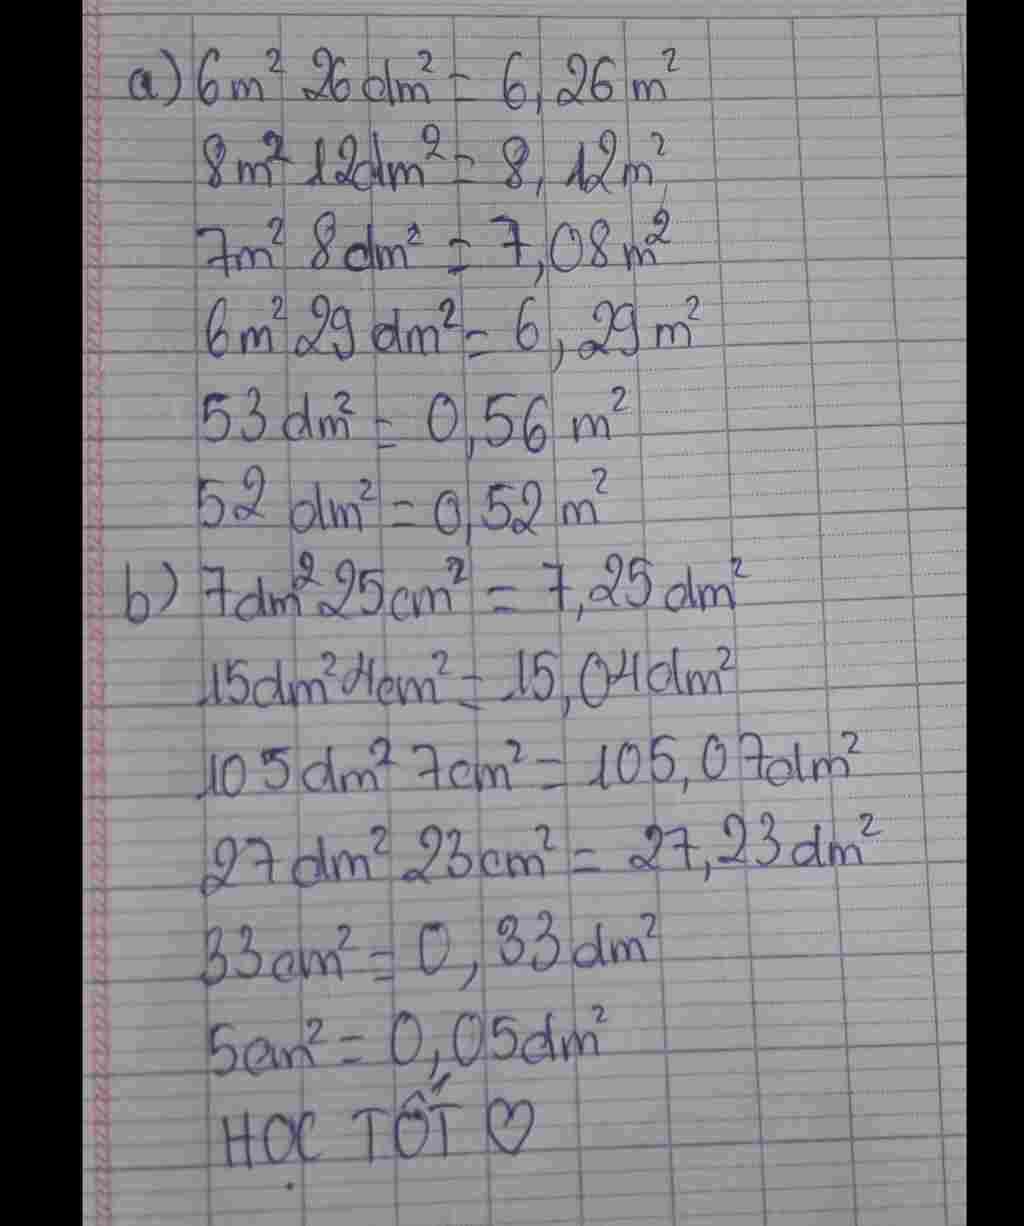 a) 6m² 26dm² = 6,26m²
8m² 12dm² = 8,12m²
7m² 8dm² = 7,08m²
6m² 29dm² = 6,29m²
53dm² = 0,56m²
52 dm² = 0,52m²
b) 7dm² 25cm² = 7,25dm²
15dm² 4cm² = 15,04dm²
105dm² 7cm² = 105,07dm²
27dm² 23cm² = 27,23dm²
33cm² = 0,33dm²
5cm² = 0,05dm²
HỌC TỐT ♡